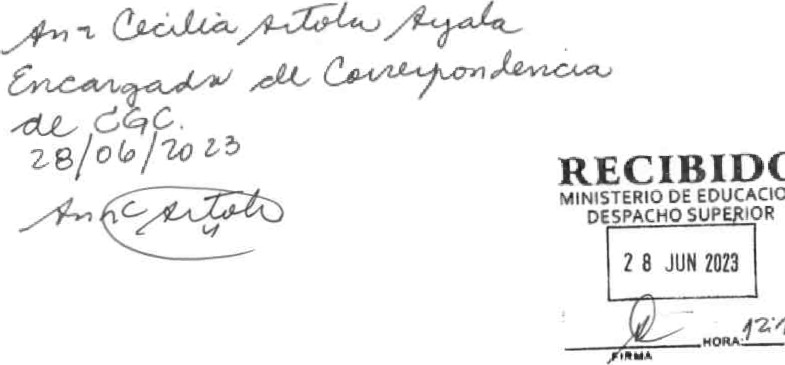 Ana Cecilia Artola Ayala
Encargada de Correspondencia
de CGC.
28/06/2023
Ana C Artola
RECIBIDO
MINISTERIO DE EDUCACIO
DESPACHO SUPERIOR
28 JUN 2023
HORA: 12:1
FIRMA